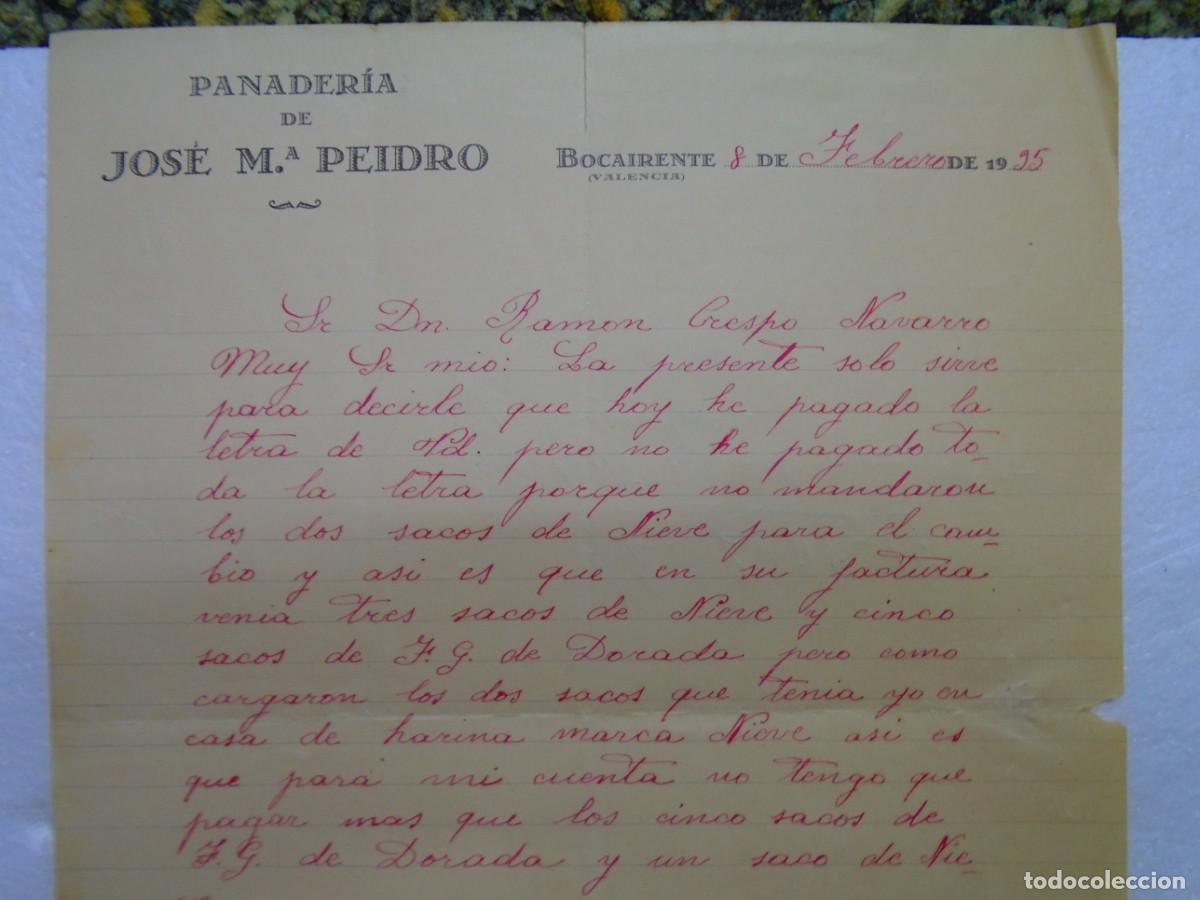 PANADERÍA
DE
JOSÉ M.ª PEIDRO
BOCAIRENTE 8 DE Febrero DE 1935
(VALENCIA)
Sr Dn. Ramon Crespo Navarro
Muy Sr mio: La presente solo sirve
para decirle que hoy he pagado la
letra de Vd. pero no he pagado to-
da la letra porque no mandaron
los dos sacos de Nieve para el cam-
bio y asi es que en su factura
venia tres sacos de Nieve y cinco
sacos de F. G. de Dorada pero como
cargaron los dos sacos que tenia yo en
casa de harina marca Nieve asi es
que para mi cuenta no tengo que
pagar mas que los cinco sacos de
F. G. de Dorada y un saco de Nie-
todocoleccion